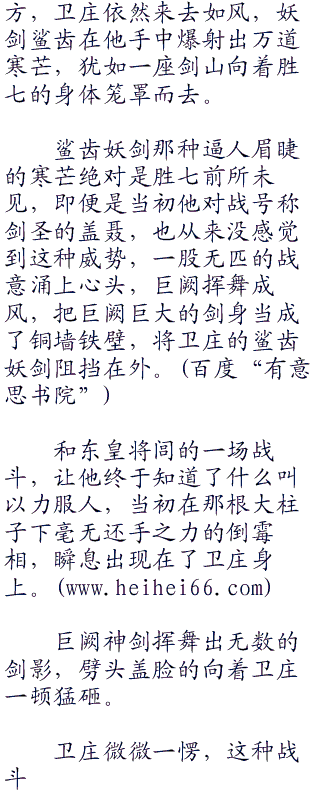 方，卫庄依然来去如风，妖
剑鲨齿在他手中爆射出万道
寒芒，犹如一座剑山向着胜
七的身体笼罩而去。
鲨齿妖剑那种逼人眉睫
的寒芒绝对是胜七前所未
见，即便是当初他对战号称
剑圣的盖聂，也从来没感觉
到这种威势，一股无匹的战
意涌上心头，巨阙挥舞成
风，把巨阙巨大的剑身当成
了铜墙铁壁，将卫庄的鲨齿
妖剑阻挡在外。(百度“有意
思书院”)
和东皇将闾的一场战
斗，让他终于知道了什么叫
以力服人，当初在那根大柱
子下毫无还手之力的倒霉
相，瞬息出现在了卫庄身
上。(www.heihei66.com)
巨阙神剑挥舞出无数的
剑影，劈头盖脸的向着卫庄
一顿猛砸。
卫庄微微一愣，这种战
斗